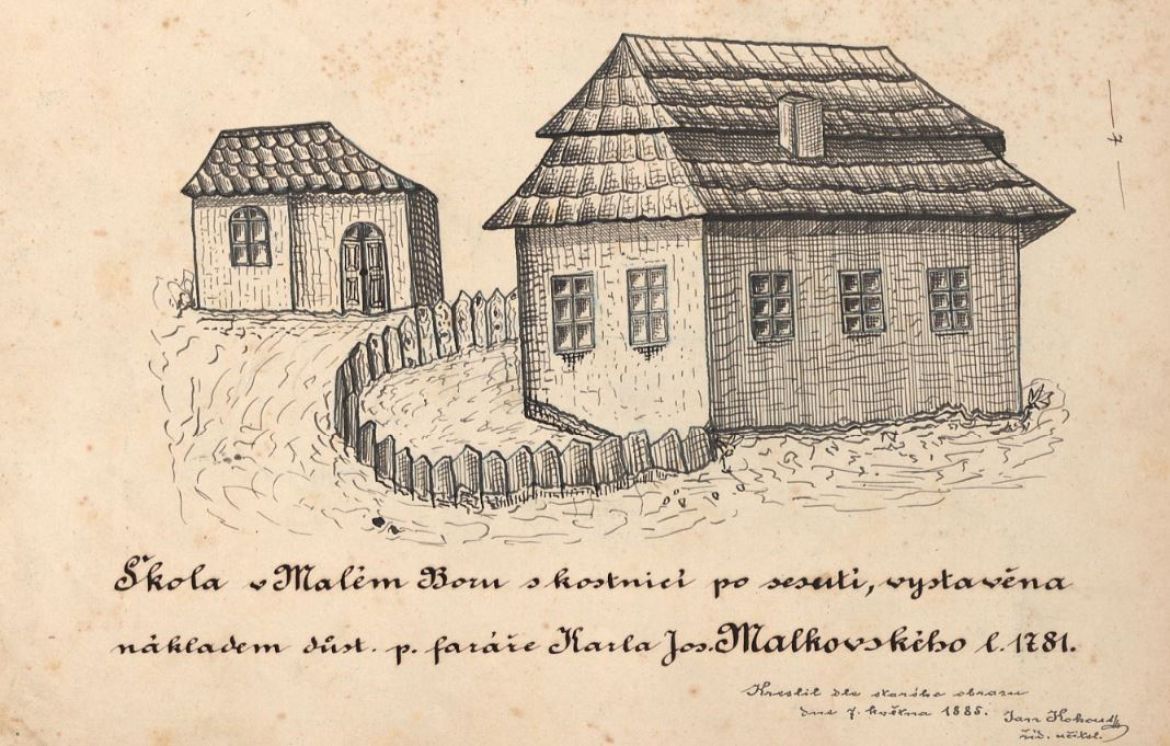 — 7 —
Škola v Malém Boru s kostnicí po sesutí, vystavěna
nákladem důst. p. faráře Karla Jos. Malkovského l. 1781.
Kreslil dle starého obrazu
dne 7. května 1885. Jan Kohout
říd. učitel.